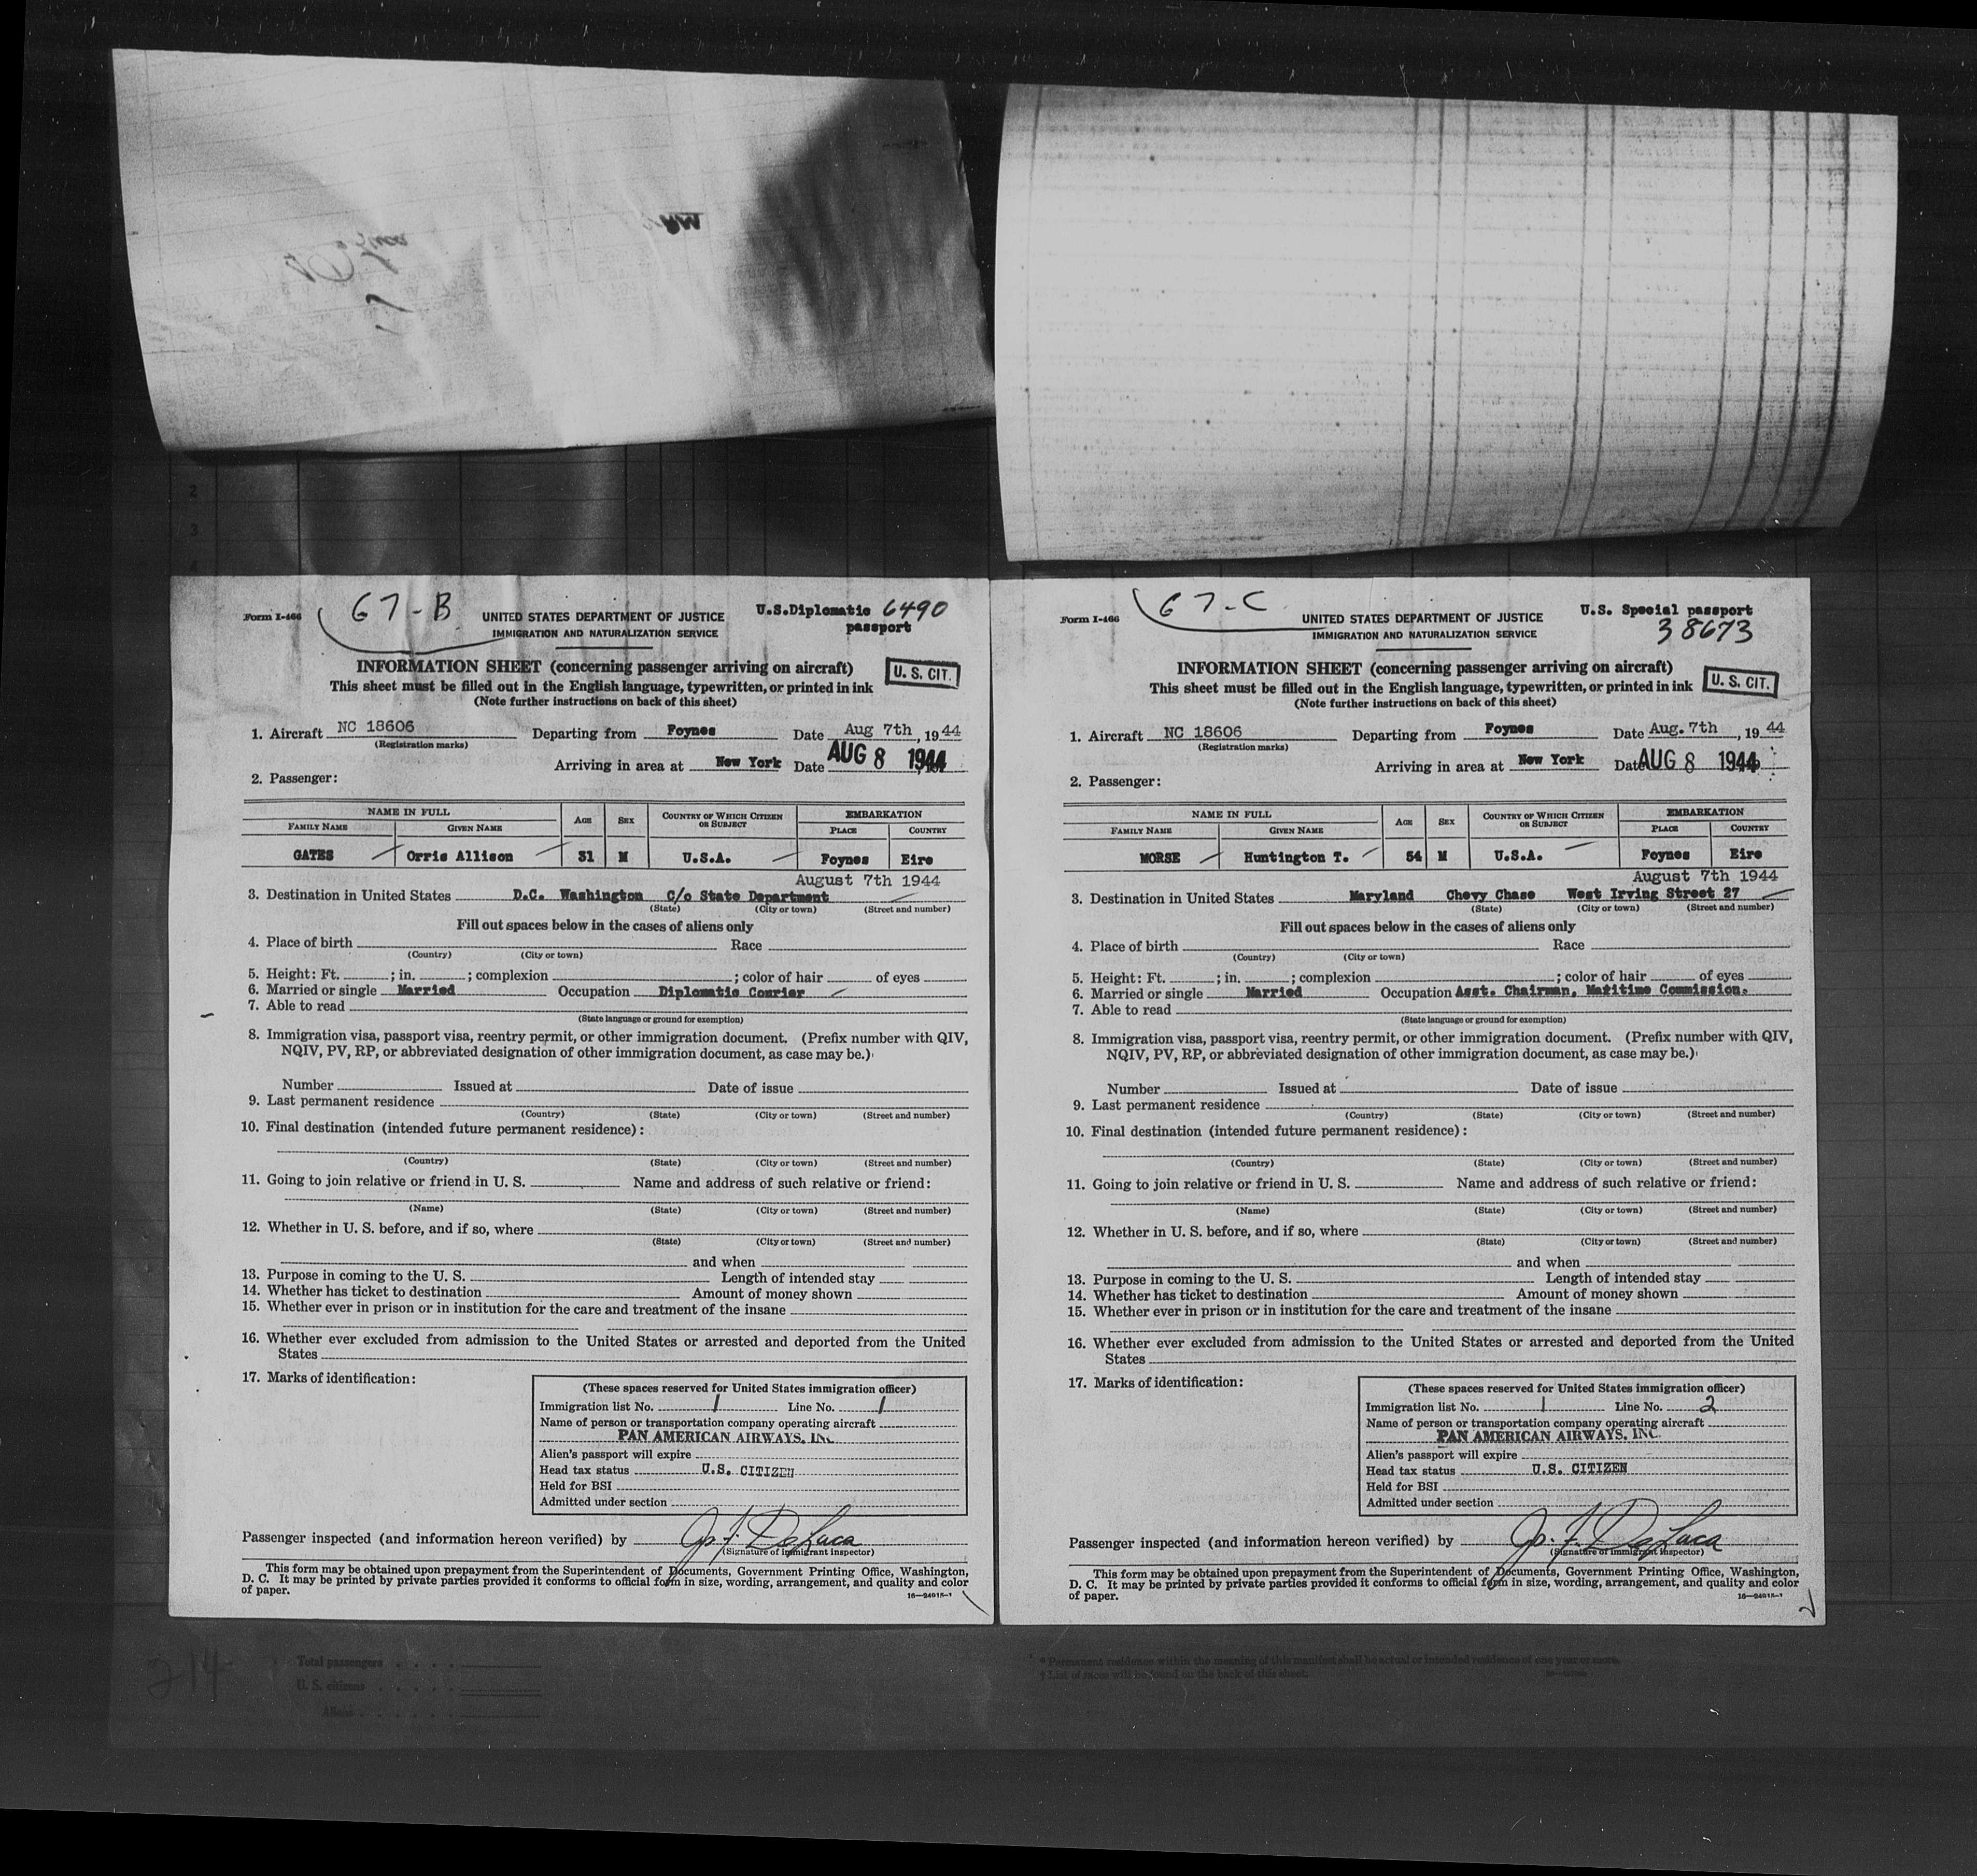 Form I-466
67-B
UNITED STATES DEPARTMENT OF JUSTICE
IMMIGRATION AND NATURALIZATION SERVICE
U.S.Diplomatic 6490
passport
INFORMATION SHEET (concerning passenger arriving on aircraft)
U. S. CIT.
This sheet must be filled out in the English language, typewritten, or printed in ink
(Note further instructions on back of this sheet)
1. Aircraft NC 18606 Departing from Foynes Date Aug 7th, 1944
(Registration marks)
Arriving in area at New York Date AUG 8 1944
2. Passenger:
NAME IN FULL AGE SEX COUNTRY OF WHICH CITIZEN OR SUBJECT EMBARKATION
FAMILY NAME GIVEN NAME PLACE COUNTRY
GATES Orris Allison 31 M U.S.A. Foynes Eire
August 7th 1944
3. Destination in United States D.C. Washington C/o State Department
(State) (City or town) (Street and number)
Fill out spaces below in the cases of aliens only
4. Place of birth Race
(Country) (City or town)
5. Height: Ft. ; in. ; complexion ; color of hair of eyes
6. Married or single Married Occupation Diplomatic Courier
7. Able to read
(State language or ground for exemption)
8. Immigration visa, passport visa, reentry permit, or other immigration document. (Prefix number with QIV,
NQIV, PV, RP, or abbreviated designation of other immigration document, as case may be.)
Number Issued at Date of issue
9. Last permanent residence
(Country) (State) (City or town) (Street and number)
10. Final destination (intended future permanent residence):
(Country) (State) (City or town) (Street and number)
11. Going to join relative or friend in U. S. Name and address of such relative or friend:
(Name) (State) (City or town) (Street and number)
12. Whether in U. S. before, and if so, where
(State) (City or town) (Street and number)
and when
13. Purpose in coming to the U. S. Length of intended stay
14. Whether has ticket to destination Amount of money shown
15. Whether ever in prison or in institution for the care and treatment of the insane
16. Whether ever excluded from admission to the United States or arrested and deported from the United
States
17. Marks of identification:
(These spaces reserved for United States immigration officer)
Immigration list No. 1 Line No. 1
Name of person or transportation company operating aircraft
PAN AMERICAN AIRWAYS, INC.
Alien's passport will expire
Head tax status U.S. CITIZEN
Held for BSI
Admitted under section
Passenger inspected (and information hereon verified) by Jos. F. DeLuca
(Signature of immigrant inspector)
This form may be obtained upon prepayment from the Superintendent of Documents, Government Printing Office, Washington,
D. C. It may be printed by private parties provided it conforms to official form in size, wording, arrangement, and quality and color
of paper.
16—24015-1
Form I-466
67-C
UNITED STATES DEPARTMENT OF JUSTICE
IMMIGRATION AND NATURALIZATION SERVICE
U.S. Special passport
38673
INFORMATION SHEET (concerning passenger arriving on aircraft)
U. S. CIT.
This sheet must be filled out in the English language, typewritten, or printed in ink
(Note further instructions on back of this sheet)
1. Aircraft NC 18606 Departing from Foynes Date Aug. 7th, 1944
(Registration marks)
Arriving in area at New York Date AUG 8 1944
2. Passenger:
NAME IN FULL AGE SEX COUNTRY OF WHICH CITIZEN OR SUBJECT EMBARKATION
FAMILY NAME GIVEN NAME PLACE COUNTRY
MORSE Huntington T. 54 M U.S.A. Foynes Eire
August 7th 1944
3. Destination in United States Maryland Chevy Chase West Irving Street 27
(State) (City or town) (Street and number)
Fill out spaces below in the cases of aliens only
4. Place of birth Race
(Country) (City or town)
5. Height: Ft. ; in. ; complexion ; color of hair of eyes
6. Married or single Married Occupation Asst. Chairman, Maritime Commission.
7. Able to read
(State language or ground for exemption)
8. Immigration visa, passport visa, reentry permit, or other immigration document. (Prefix number with QIV,
NQIV, PV, RP, or abbreviated designation of other immigration document, as case may be.)
Number Issued at Date of issue
9. Last permanent residence
(Country) (State) (City or town) (Street and number)
10. Final destination (intended future permanent residence):
(Country) (State) (City or town) (Street and number)
11. Going to join relative or friend in U. S. Name and address of such relative or friend:
(Name) (State) (City or town) (Street and number)
12. Whether in U. S. before, and if so, where
(State) (City or town) (Street and number)
and when
13. Purpose in coming to the U. S. Length of intended stay
14. Whether has ticket to destination Amount of money shown
15. Whether ever in prison or in institution for the care and treatment of the insane
16. Whether ever excluded from admission to the United States or arrested and deported from the United
States
17. Marks of identification:
(These spaces reserved for United States immigration officer)
Immigration list No. 1 Line No. 2
Name of person or transportation company operating aircraft
PAN AMERICAN AIRWAYS, INC.
Alien's passport will expire
Head tax status U.S. CITIZEN
Held for BSI
Admitted under section
Passenger inspected (and information hereon verified) by Jos. F. DeLuca
(Signature of immigrant inspector)
This form may be obtained upon prepayment from the Superintendent of Documents, Government Printing Office, Washington,
D. C. It may be printed by private parties provided it conforms to official form in size, wording, arrangement, and quality and color
of paper.
16—24015-1
2
3
4
214
Total passengers
U. S. citizens
Aliens
* Permanent residence within the meaning of this manifest shall be actual or intended residence of one year or more.
† List of races will be found on the back of this sheet.